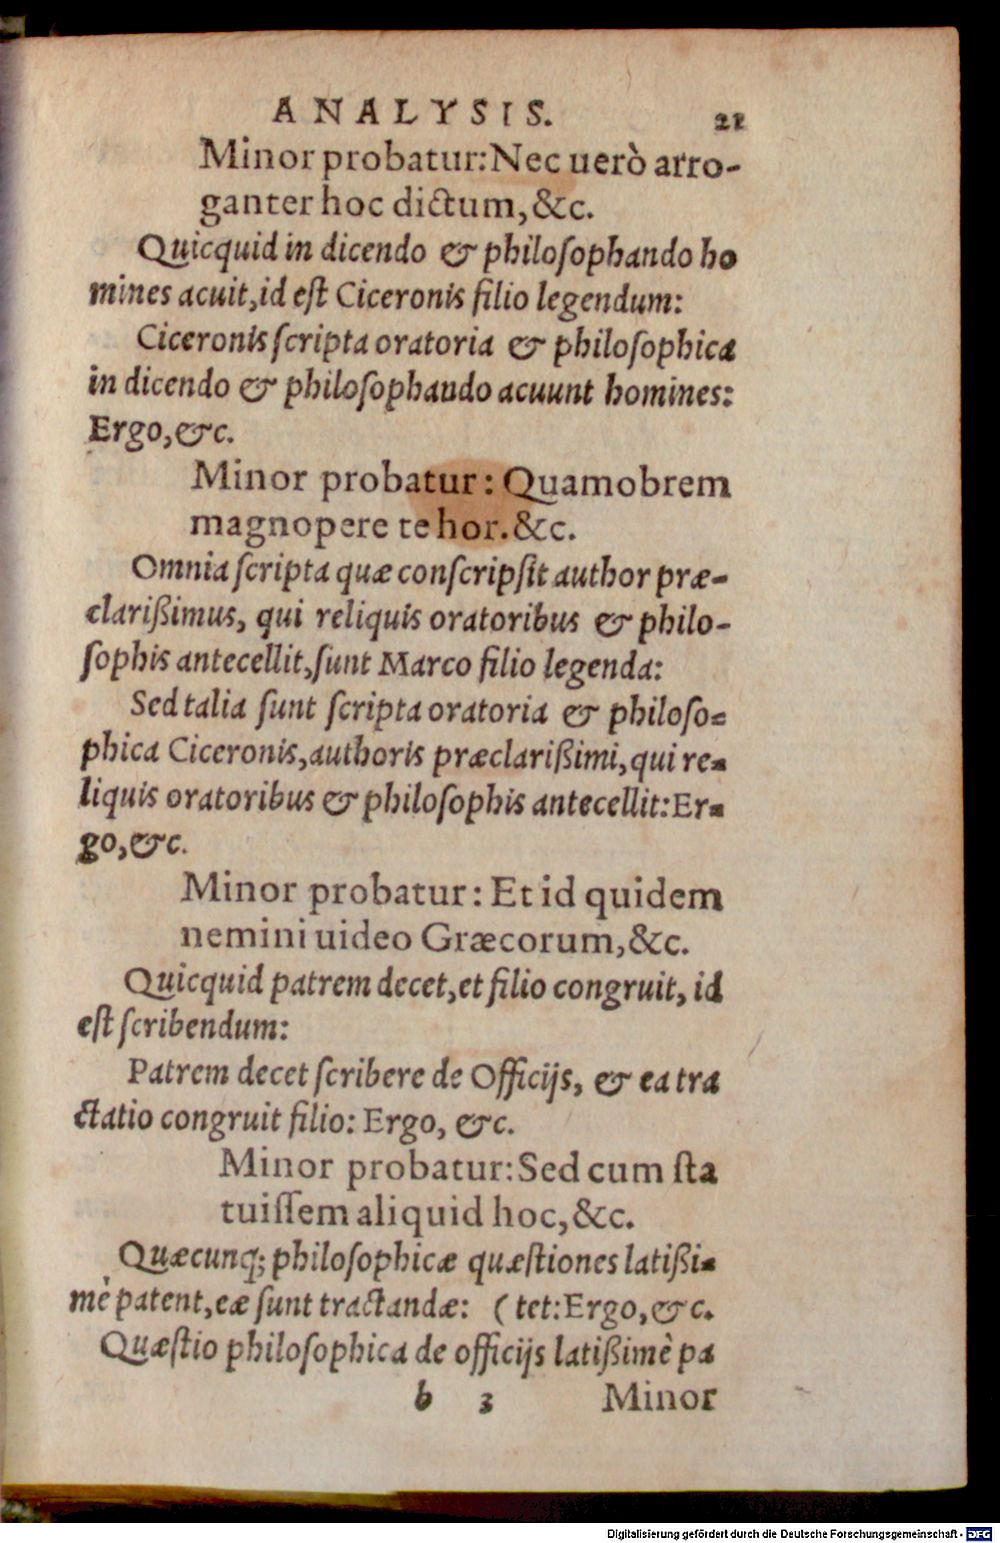 ANALYSIS. 21
Minor probatur: Nec uerò arro-
ganter hoc dictum, &c.
Quicquid in dicendo & philoſophando ho
mines acuit, id eſt Ciceronis filio legendum:
Ciceronis ſcripta oratoria & philoſophica
in dicendo & philoſophando acuunt homines:
Ergo, &c.
Minor probatur: Quamobrem
magnopere te hor. &c.
Omnia ſcripta quæ conſcripſit author præ-
clarißimus, qui reliquis oratoribus & philo-
ſophis antecellit, ſunt Marco filio legenda:
Sed talia ſunt ſcripta oratoria & philoſo-
phica Ciceronis, authoris præclarißimi, qui re-
liquis oratoribus & philoſophis antecellit: Er-
go, &c.
Minor probatur: Et id quidem
nemini uideo Græcorum, &c.
Quicquid patrem decet, et filio congruit, id
eſt ſcribendum:
Patrem decet ſcribere de Officijs, & ea tra
ctatio congruit filio: Ergo, &c.
Minor probatur: Sed cum ſta
tuiſſem aliquid hoc, &c.
Quæcunq; philoſophicæ quæſtiones latißi-
mè patent, eæ ſunt tractandæ: (tet: Ergo, &c.
Quæſtio philoſophica de officijs latißimè pa
b 3 Minor
Digitalisierung gefördert durch die Deutsche Forschungsgemeinschaft - DFG